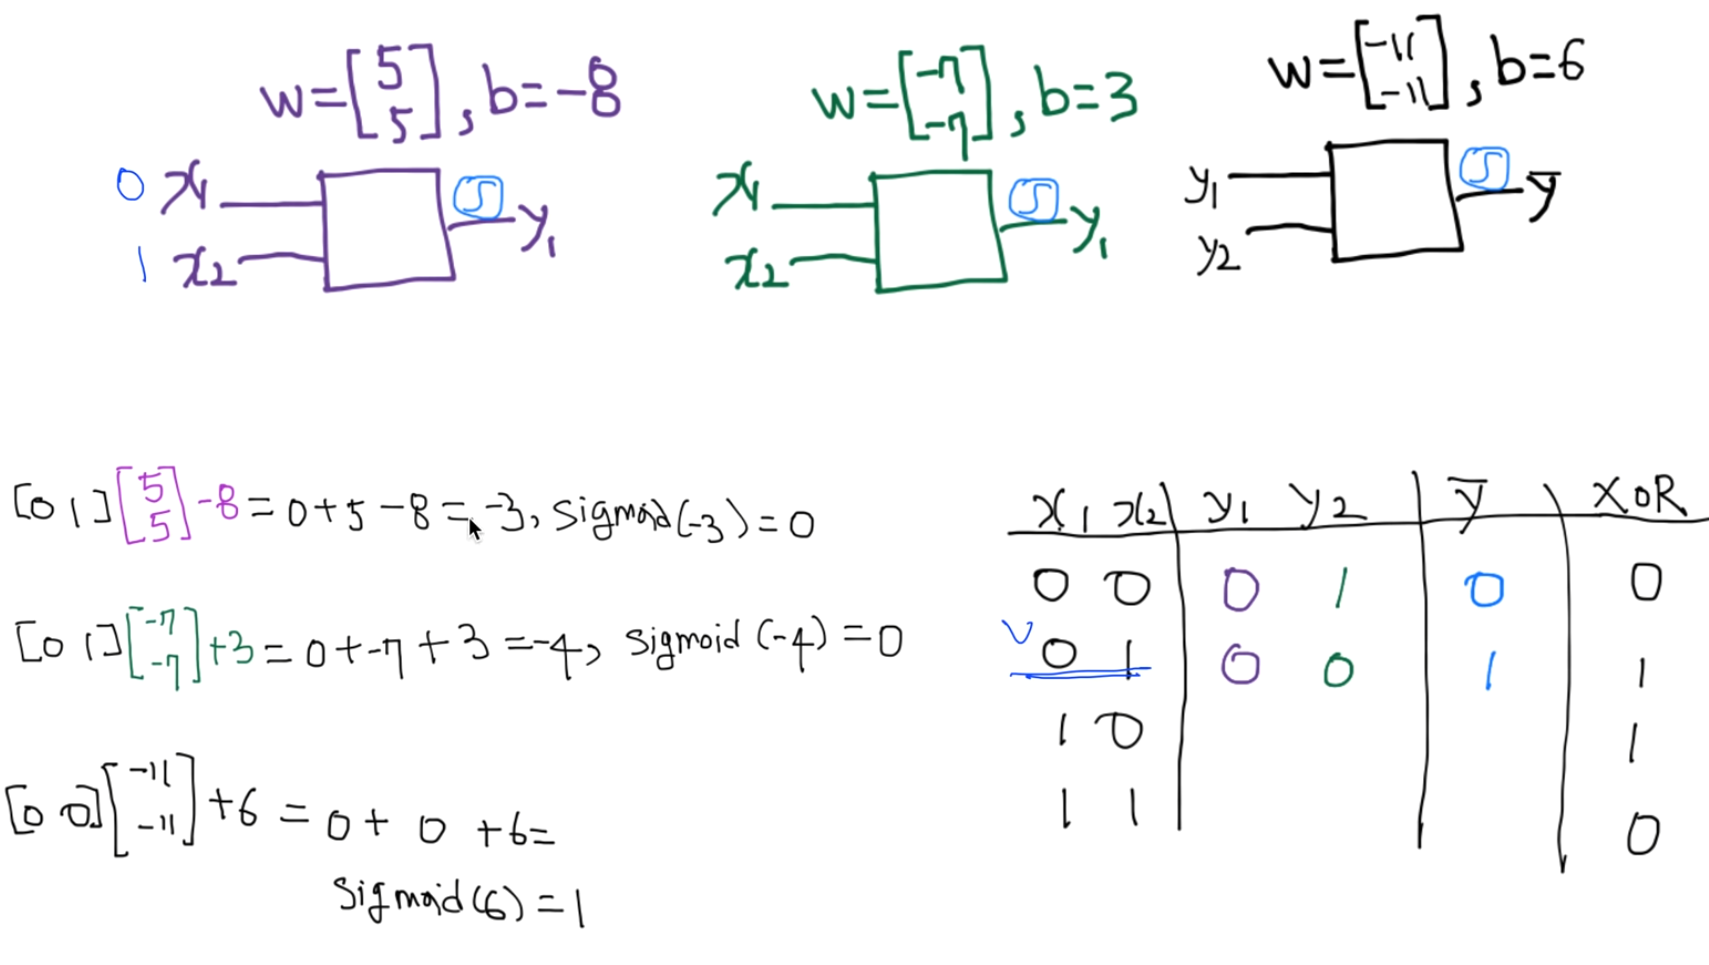 w=[5 5], b=-8
0 x1
1 x2
S
y1
w=[-7 -7], b=3
x1
x2
S
y1
w=[-11 -11], b=6
y1
y2
S
ȳ
[0 1][5 5]-8=0+5-8=-3, sigmoid(-3)=0
[0 1][-7 -7]+3=0+-7+3=-4, sigmoid(-4)=0
[0 0][-11 -11]+6=0+0+6=
sigmoid(6)=1
x1 x2 y1 y2 ȳ XOR
0 0 0 1 0 0
V 0 1 0 0 1 1
1 0 1
1 1 0